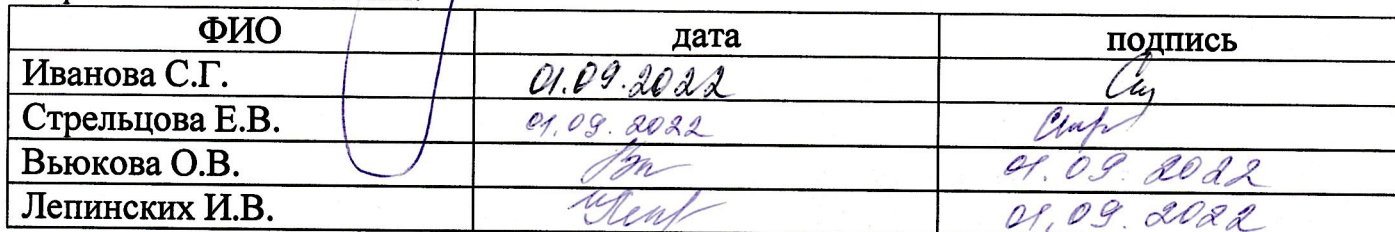 ФИО дата подпись
Иванова С.Г. 01.09.2022
Стрельцова Е.В. 01.09.2022
Вьюкова О.В. 01.09.2022
Лепинских И.В. 01.09.2022